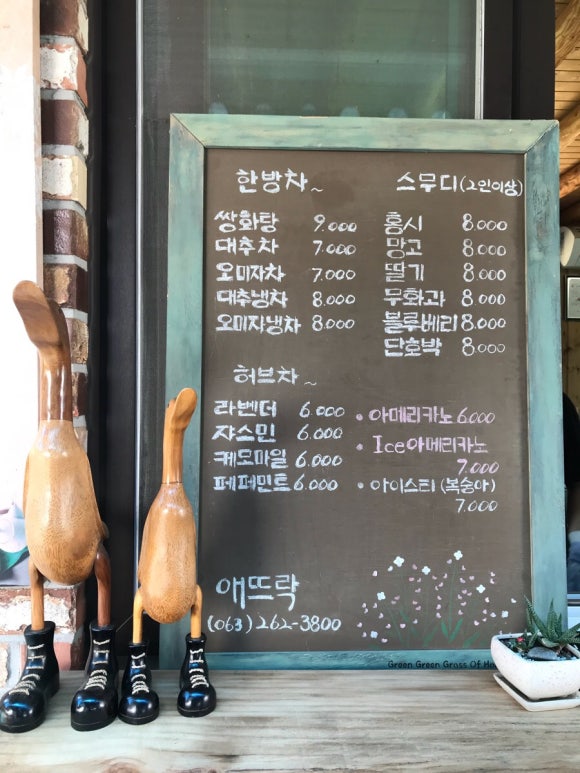 한방차~
쌍화탕 9.000
대추차 7.000
오미자차 7.000
대추냉차 8.000
오미자냉차 8.000
스무디(2인이상)
홍시 8.000
망고 8.000
딸기 8.000
무화과 8.000
블루베리 8.000
단호박 8.000
허브차~
라벤더 6.000
쟈스민 6.000
케모마일 6.000
페페민트 6.000
• 아메리카노 6.000
• Ice아메리카노
7.000
• 아이스티(복숭아)
7.000
애뜨락
(063)262-3800
Green Green Grass Of